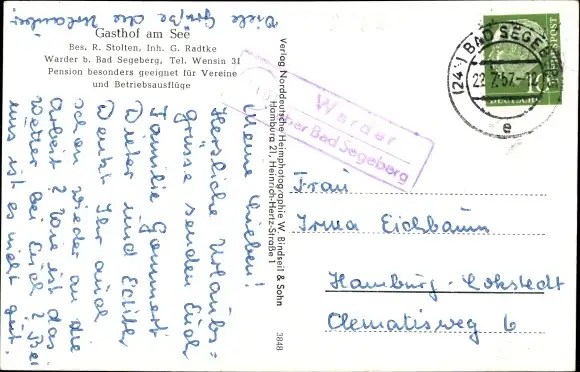 Viele Grüße die Urlauber
Gasthof am See
Bes. R. Stolten, Inh. G. Radtke
Warder b. Bad Segeberg, Tel. Wensin 31
Pension besonders geeignet für Vereine
und Betriebsausflüge
Meine Lieben!
Herzliche Urlaubs=
grüsse senden Euch
Familie Gommert
Dieter und
Denkt Ihr auch
schon wieder an die
Arbeit? Wie ist das
Wetter bei Euch? Bei
uns ist es nicht gut.
Verlag Norddeutsche Heimphotographie W. Bindseil & Sohn
Hamburg 21, Heinrich-Hertz-Straße 1
3848
Warder
über Bad Segeberg
(24b) BAD SEGEBERG
22.7.57.-12
e
10
DEUTSCHE
BUNDESPOST
Frau
Irma Eichbaum
Hamburg-Lokstedt
Clematisweg 6